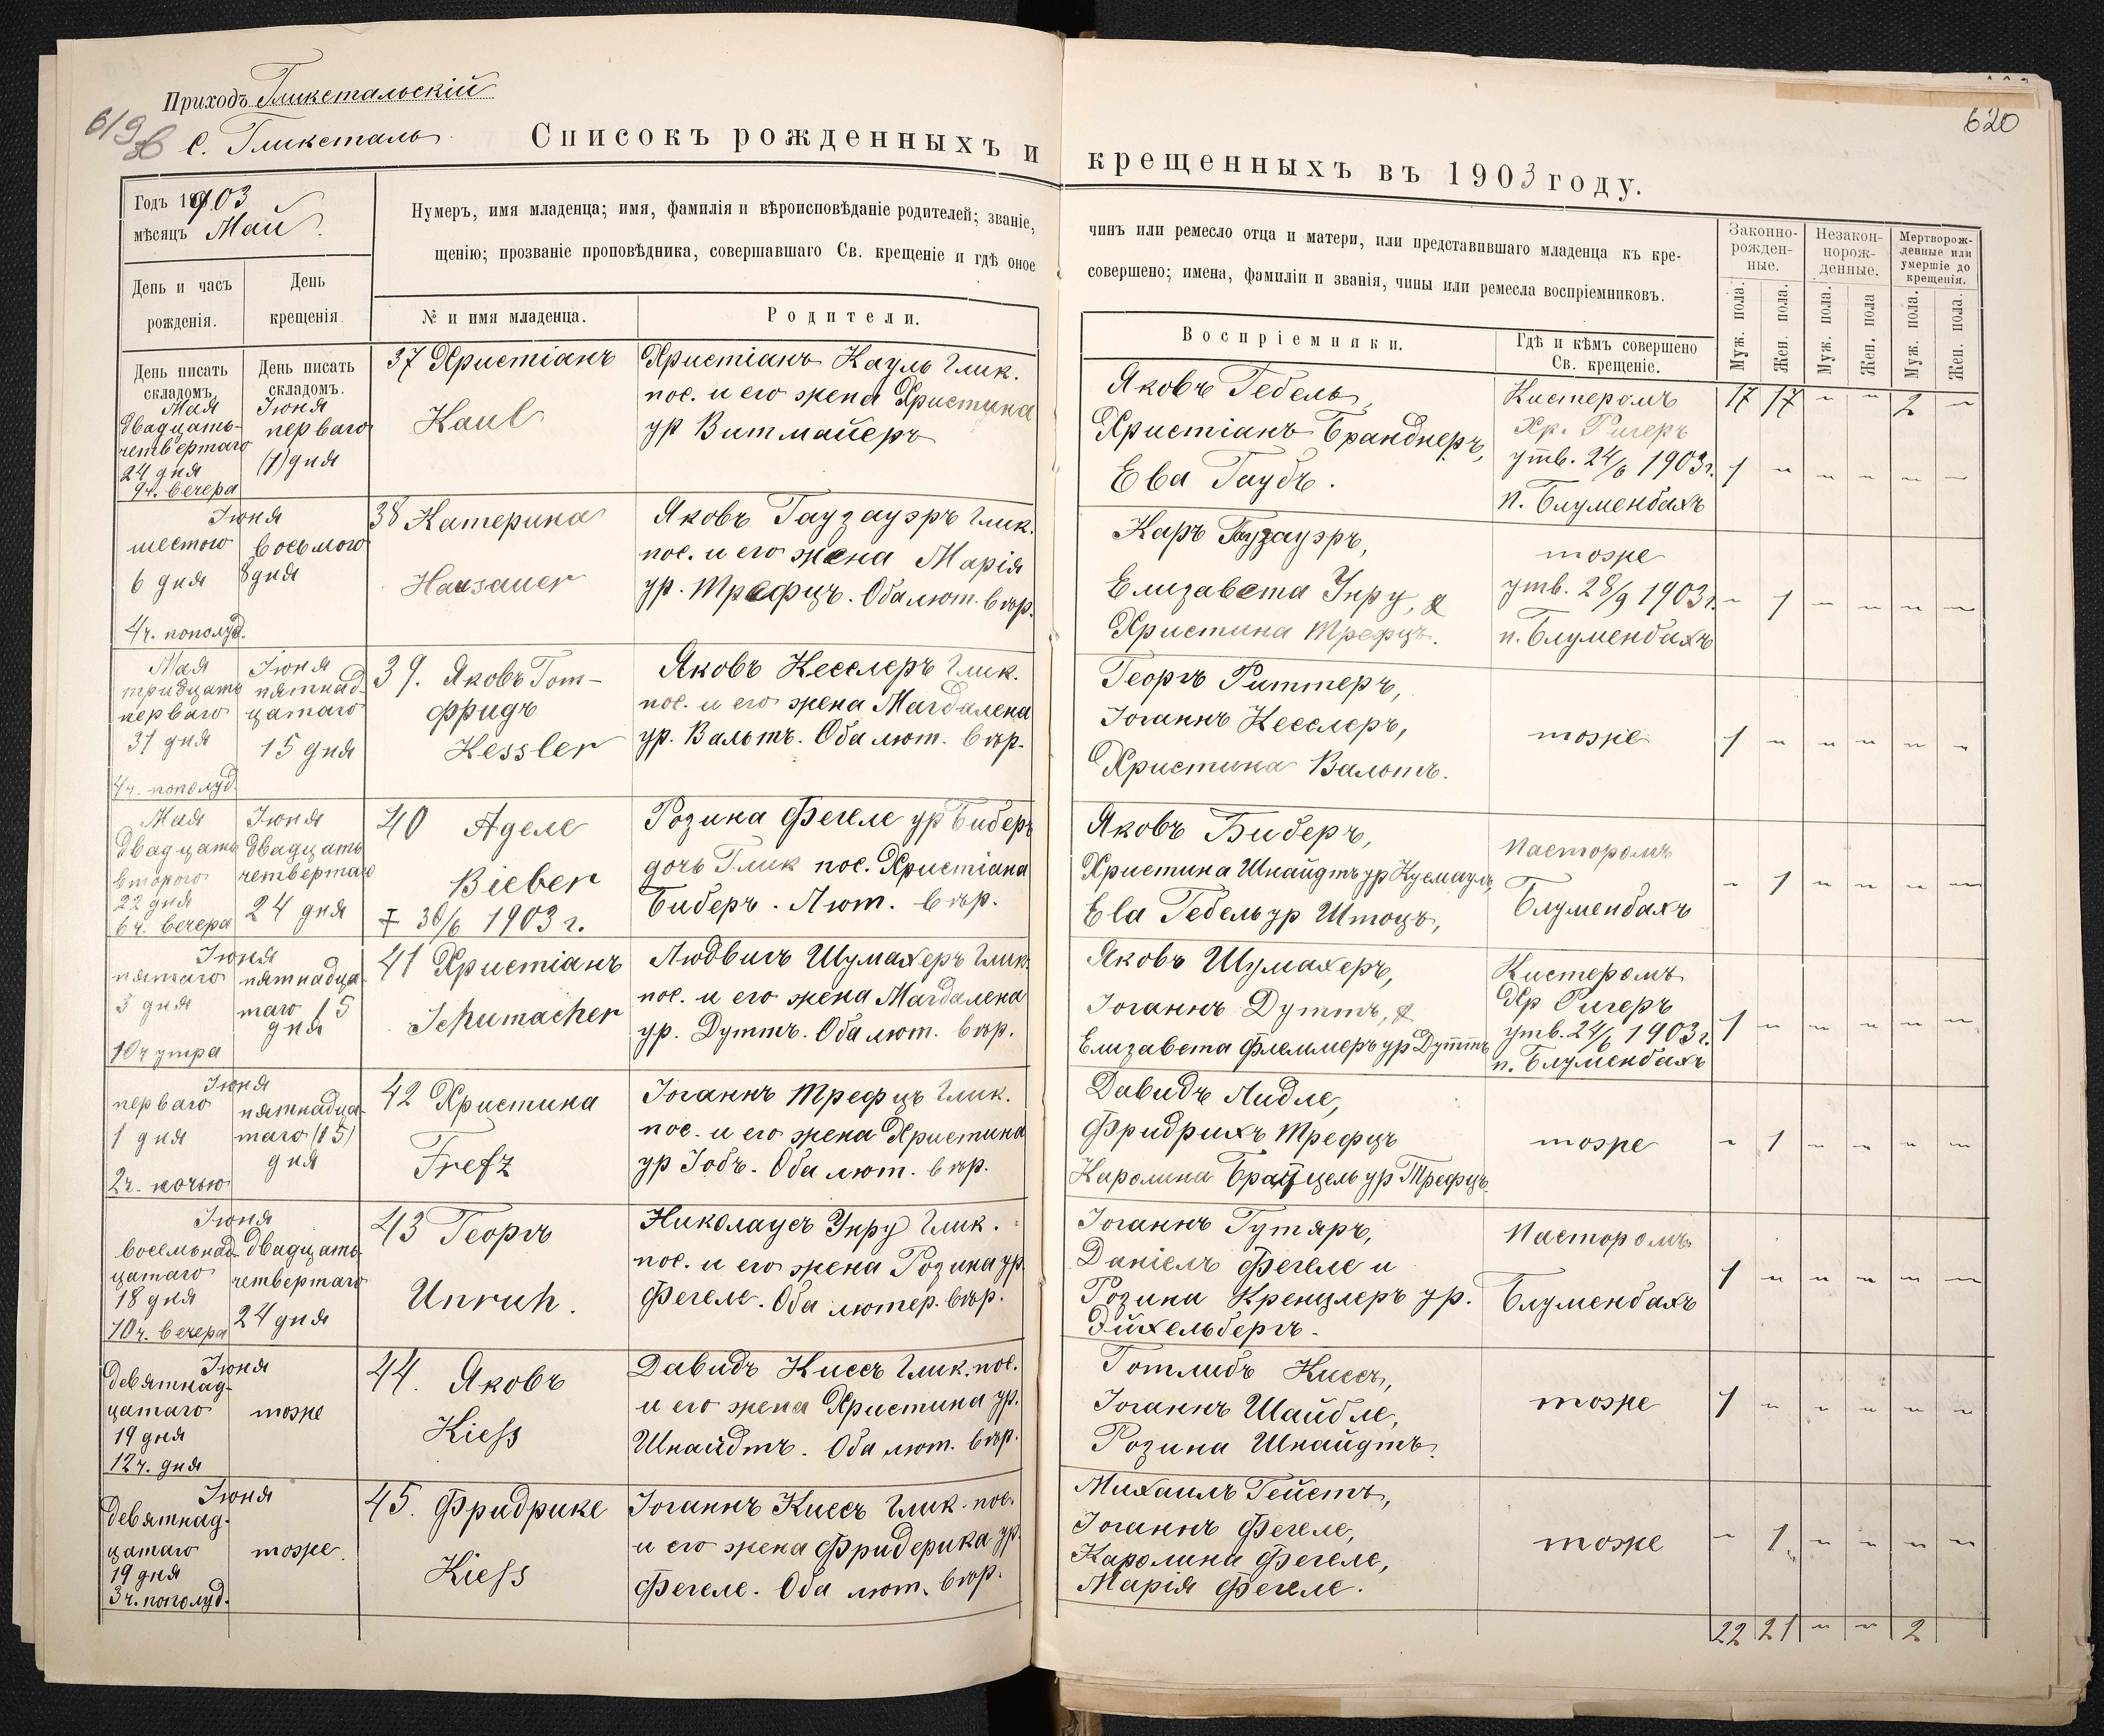 Приходъ Гликстальскій
с. Гликсталь
620
Списокъ рожденныхъ и крещенныхъ въ 1903 году.
Годъ 1903
мѣсяцъ Май
Нумеръ, имя младенца; имя, фамилія и вѣроисповѣданіе родителей; званіе, чинъ или ремесло отца и матери, или представившаго младенца къ кре-
щенію; прозваніе проповѣдника, совершавшаго Св. крещеніе и гдѣ оное совершено; имена, фамиліи и званія, чины или ремесла воспріемниковъ.
День и часъ
рожденія.
День
крещенія
№ и имя младенца.
Родители.
Воспріемники.
Гдѣ и кѣмъ совершено
Св. крещеніе.
Законно-
рожден-
ные.
Незакон-
норож-
денные.
Мертворож-
денные или
умершіе до
крещенія.
Муж. пола.
Жен. пола.
Муж. пола.
Жен. пола
Муж. пола.
Жен. пола.
День писать
складомъ.
День писать
складомъ.
Мая
двадцать-
четвертаго
24 дня
9ч. вечера
Іюня
перваго
(1) дня
37 Христіанъ
Kaul
Христіанъ Кауль Глик.
пос. и его жена Христина
ур Витмайеръ
Яковъ Гебель,
Христіанъ Бранднеръ,
Ева Гаубъ.
Кистеромъ
Хр. Ригеръ
утв. 24/6 1903г.
п. Блуменбахъ
17 17 " " 2 "
1 " " " " "
Іюня
шестого
6 дня
4ч. пополуд.
восьмого
8 дня
38 Катерина
Hausauer
Яковъ Гаузауэръ Глик.
пос. и его жена Марія
ур. Трефцъ. Оба лют. вѣр.
Каръ Гаузауэръ,
Елизавета Унру, &
Христина Трефцъ.
тоже
утв. 28/9 1903г.
п. Блуменбахъ
" 1 " " " "
Мая
тридцать
перваго
31 дня
4ч. пополуд.
Іюня
пятнад-
цатаго
15 дня
39. Яковъ Гот-
фридъ
Kessler
Яковъ Кесслеръ Глик.
пос. и его жена Магдалена
ур. Вальтъ. Оба лют. вѣр.
Георгъ Риттеръ,
Іоганнъ Кесслеръ,
Христина Вальтъ.
тоже
1 " " " " "
Мая
двадцать
второго
22 дня
6ч. вечера
Іюня
двадцать
четвертаго
24 дня
40 Аделе
Bieber
‡ 30/6 1903 г.
Розина Фегеле ур Биберъ
дочь Глик пос. Христіана
Биберъ. Лют. вѣр.
Яковъ Биберъ,
Христина Шнайдтъ ур Кусмаулъ,
Ева Гебель ур Штоцъ,
Пасторомъ
Блуменбахъ
" 1 " " " "
Іюня
пятаго
5 дня
10ч утра
пятнадца-
таго 15
дня
41 Христіанъ
Schumacher
Людвигъ Шумахеръ Глик.
пос. и его жена Магдалена
ур. Дуттъ. Оба лют. вѣр.
Яковъ Шумахеръ,
Іоганнъ Дуттъ, &
Елизавета Флеммеръ ур Дуттъ
Кистеромъ
Хр Ригеръ
утв. 24/6 1903г.
п. Блуменбахъ
1 " " " " "
Іюня
перваго
1 дня
2ч. ночью
пятнадца-
таго (15)
дня
42 Христина
Frefz
Іоганнъ Трефцъ Глик.
пос. и его жена Христина
ур Іобъ. Оба лют. вѣр.
Давидъ Лидле,
Фридрихъ Трефцъ
Каролина ур Трефцъ
тоже
" 1 " " " "
Іюня
восемьнад-
цатаго
18 дня
10ч. вечера
двадцать-
четвертаго
24 дня
43 Георгъ
Unruh.
Николаусъ Унру Глик.
пос. и его жена Розина ур.
Фегеле. Оба лютер. вѣр.
Іоганнъ Гутяръ,
Даніелъ Фегеле и
Розина Кренцлеръ ур.
Эйхельбергъ.
Пасторомъ
Блуменбахъ
1 " " " " "
Іюня
девятнад-
цатаго
19 дня
12ч. дня
тоже
44. Яковъ
Kiess
Давидъ Киссъ Глик. пос.
и его жена Христина ур.
Шнайдтъ. Оба лют. вѣр.
Готлибъ Киссъ,
Іоганнъ Шайбле,
Розина Шнайдтъ.
тоже
1 " " " " "
Іюня
девятнад-
цатаго
19 дня
3ч. пополуд.
тоже.
45. Фридрике
Kiess
Іоганнъ Киссъ Глик. пос.
и его жена Фридерика ур.
Фегеле. Оба лют. вѣр.
Михаилъ Гейстъ,
Іоганнъ Фегеле,
Каролина Фегеле,
Марія Фегеле.
тоже
" 1 " " " "
22 21 " " 2